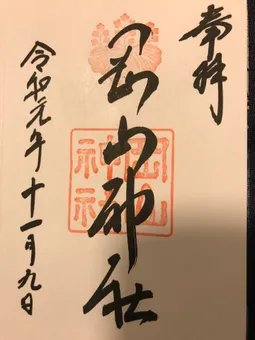 奉拝
岡山神社
岡山
神社
令和元年十一月九日